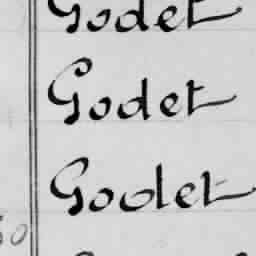 Godet
Godet
Godet